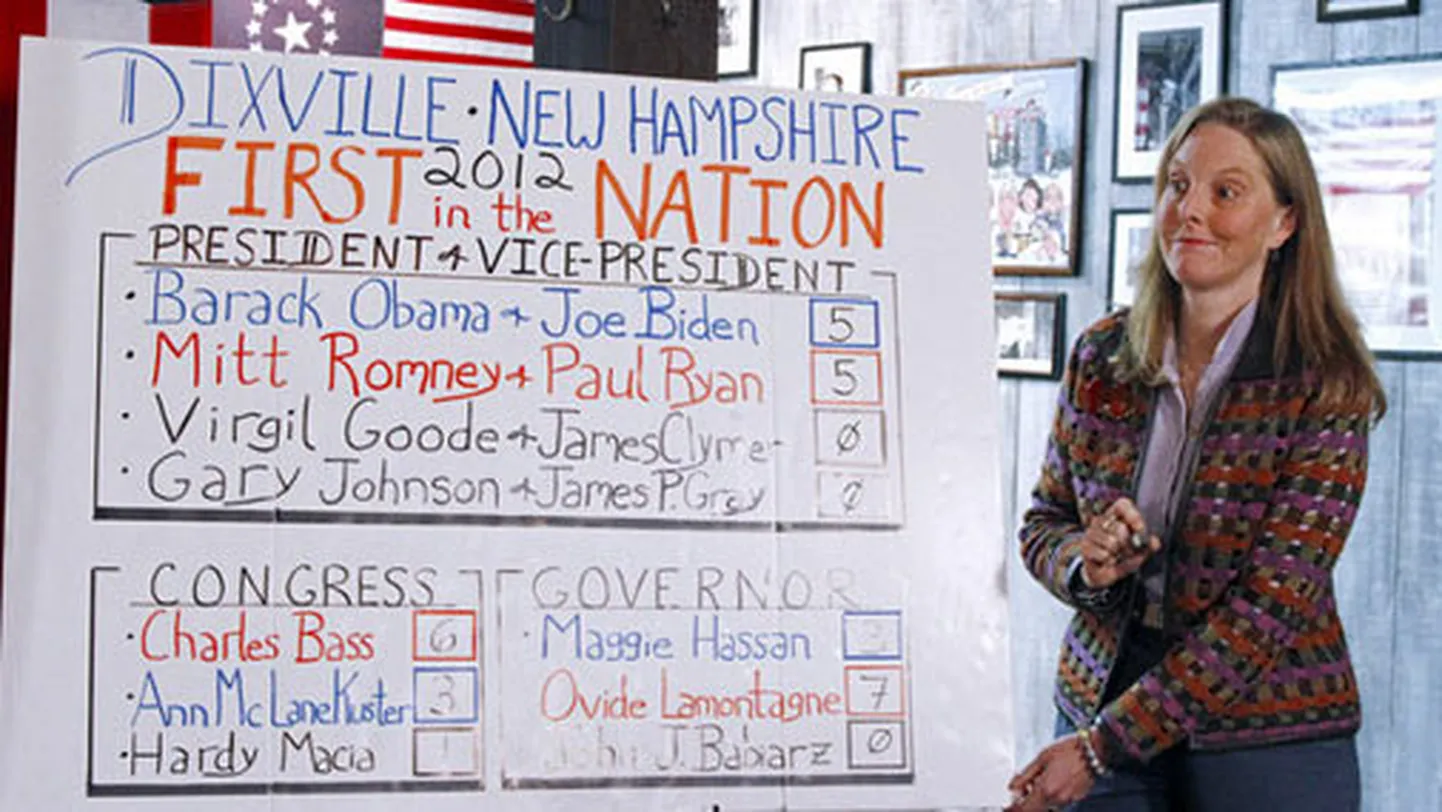 DIXVILLE · NEW HAMPSHIRE
FIRST 2012 in the NATION
PRESIDENT + VICE-PRESIDENT
· Barack Obama + Joe Biden 5
· Mitt Romney + Paul Ryan 5
· Virgil Goode + James Clymer Ø
· Gary Johnson + James P. Gray Ø
CONGRESS
· Charles Bass 6
· Ann McLane Kuster 3
· Hardy Macia 1
GOVERNOR
· Maggie Hassan 3
Ovide Lamontagne 7
John J. Babiarz Ø